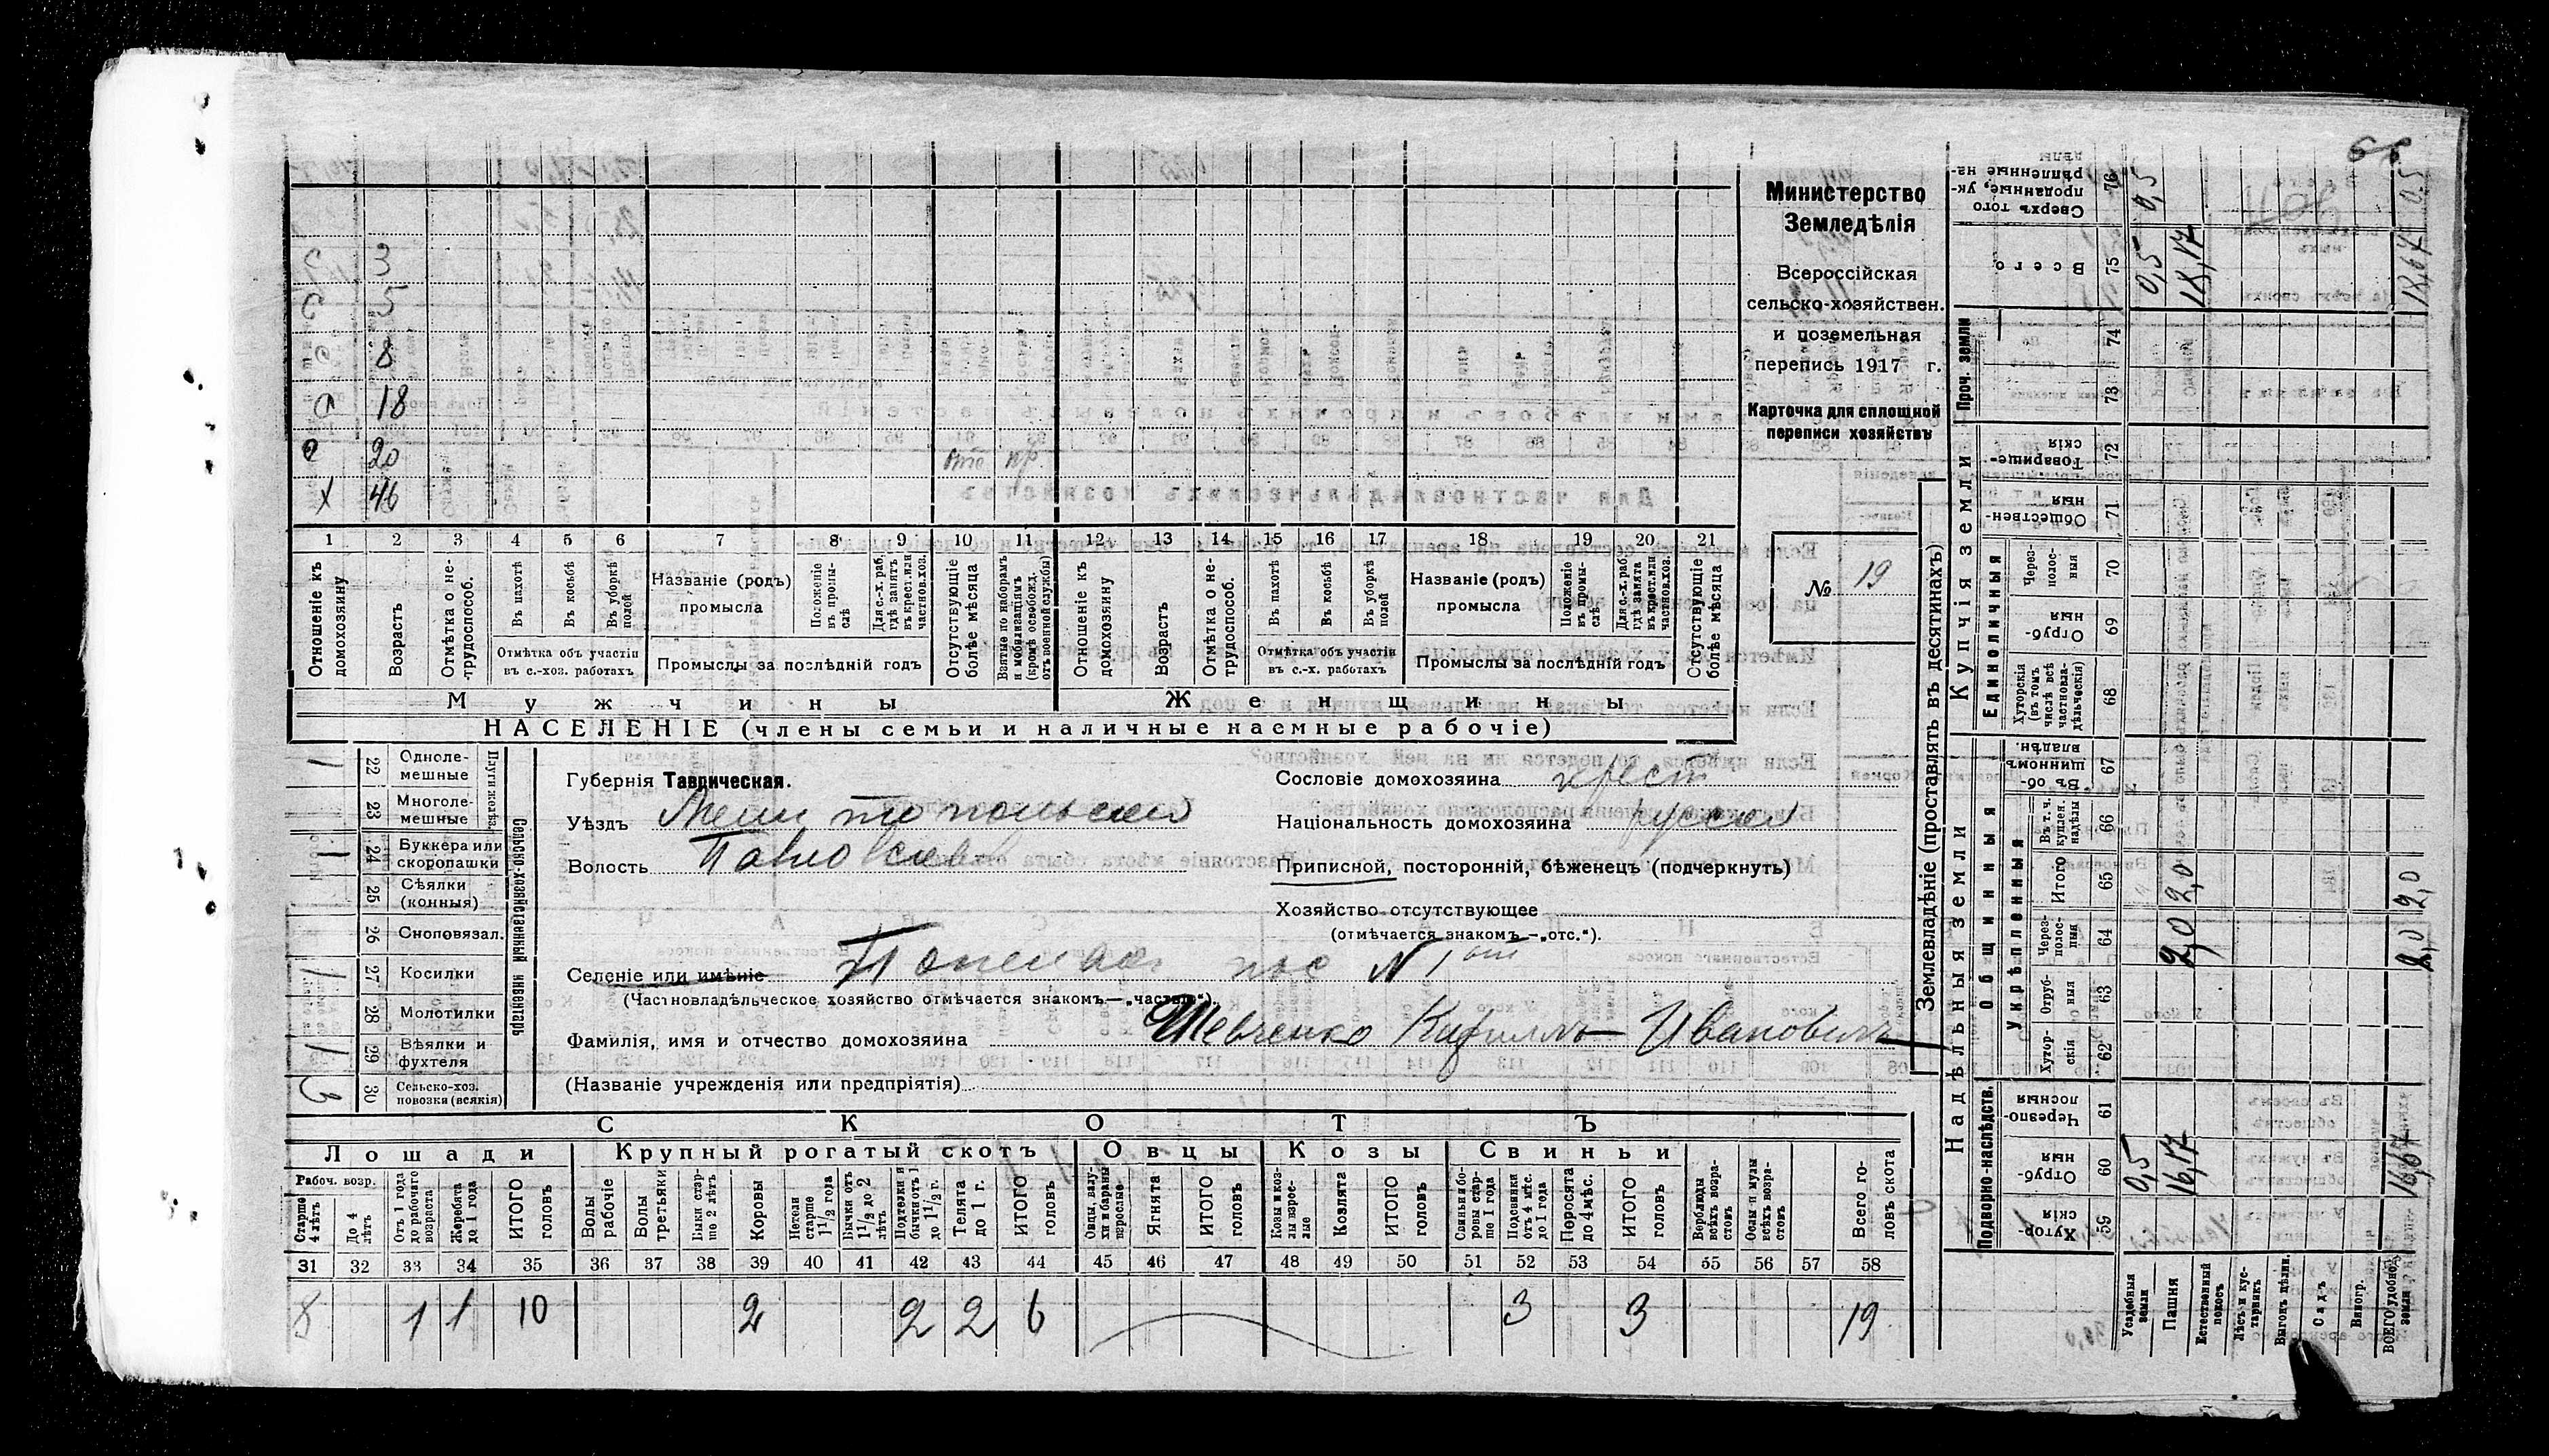 66
Министерство
Земледѣлія
Всероссійская
сельско-хозяйствен.
и поземельная
перепись 1917 г.
Карточка для сплошной
переписи хозяйствъ
№ 19
с 3
с 5
с 8
с 18
с 20 отс пр.
х 46
1 2 3 4 5 6 7 8 9 10 11 12 13 14 15 16 17 18 19 20 21
Отношеніе къ домохозяину
Возрастъ
Отмѣтка о не-трудоспособ.
Въ пахотѣ
Въ косьбѣ
Въ уборкѣ полей
Отмѣтка объ участіи въ с.-хоз. работахъ
Названіе (родъ) промысла
Положеніе въ промы-слѣ
Для с.-х. раб. гдѣ занятъ въ крест. или частнов. хоз.
Промыслы за послѣдній годъ
Отсутствующіе болѣе мѣсяца
Взятые по наборамъ и мобилизаціямъ (кромѣ освобожд. отъ военной службы)
Отношеніе къ домохозяину
Возрастъ
Отмѣтка о не-трудоспособ.
Въ пахотѣ
Въ косьбѣ
Въ уборкѣ полей
Отмѣтка объ участіи въ с.-х. работахъ
Названіе (родъ) промысла
Положеніе въ промы-слѣ
Для с.-х. раб. гдѣ занята въ крест. или частнов. хоз.
Промыслы за послѣдній годъ
Отсутствующіе болѣе мѣсяца
Мужчины
Женщины
НАСЕЛЕНІЕ (члены семьи и наличные наемные рабочіе)
Сельско-хозяйственный инвентарь
Плуги желѣз.
1 22 Одноле-мешные
23 Многоле-мешные
1 24 Буккера или скоропашки
25 Сѣялки (конныя)
26 Сноповязал.
1 27 Косилки
28 Молотилки
1 29 Вѣялки и фухтеля
3 30 Сельско-хоз. повозки (всякія)
Губернія Таврическая.
Уѣздъ Мелитопольскій
Волость Павловская
Сословіе домохозяина крест
Національность домохозяина русскій
Приписной, посторонній, бѣженецъ (подчеркнуть)
Хозяйство отсутствующее
(отмѣчается знакомъ —„отс.“).
Селеніе или имѣніе
(Частновладѣльческое хозяйство отмѣчается знакомъ—„частное“).
Фамилія, имя и отчество домохозяина Шевченко Кириллъ Ивановичъ
(Названіе учрежденія или предпріятія)
СКОТЪ
Лошади
Крупный рогатый скотъ
Овцы
Козы
Свиньи
Рабоч. возр.
Старше 4 лѣтъ
До 4 лѣтъ
Отъ 1 года до рабочаго возраста
Жеребята до 1 года
ИТОГО головъ
Волы рабочіе
Волы третьяки
Быки стар-ше 2 лѣтъ
Коровы
Нетели старше 1 1/2 года
Бычки отъ 1 1/2 до 2 лѣтъ
Подтелки и бычки отъ 1 до 1 1/2 г.
Телята до 1 г.
ИТОГО головъ
Овцы, валу-хи и бараны взрослые
Ягнята
ИТОГО головъ
Козы и коз-лы взрос-лые
Козлята
ИТОГО головъ
Свиньи бо-ровы стар-ше 1 года
Подсвинки отъ 4 мѣс. до 1 года
Поросята до 4 мѣс.
ИТОГО головъ
Верблюды всѣхъ возра-стовъ
Ослы и мулы всѣхъ возра-стовъ
Всего го-ловъ скота
31 32 33 34 35 36 37 38 39 40 41 42 43 44 45 46 47 48 49 50 51 52 53 54 55 56 57 58
8 1 1 10 2 2 2 6 3 3 19
Землевладѣніе (проставлять въ десятинахъ)
Надѣльныя земли
Купчія земли
Проч. земли
Подворно-наслѣдств.
Общинныя
Укрѣпленныя
Единоличныя
Хутор-скія 59
Отруб-ныя 60
Черезпо-лосныя 61
Хутор-скія 62
Отруб-ныя 63
Через-полос-ныя 64
Итого 65
Въ т. ч. куплен. надѣлы 66
Въ об-щинномъ владѣн. 67
Хуторскія (въ томъ числѣ всѣ частновла-дѣльческія) 68
Отруб-ныя 69
Через-полос-ныя 70
Обществен-ныя 71
Товарище-скія 72
73
74
Всего 75
Сверхъ того проданные, ук-рѣпленные на-дѣлы 76
Усадебныя земли 0,5 0,5 0,5
Пашня 16,17 2,0 2,0 18,17
Естественный покосъ
Лѣсъ и кус-тарникъ
Выгонъ дѣлин.
Садъ
Виногр.
ВСЕГО удобной земли 16,67 2,0 2,0 18,67 0,5